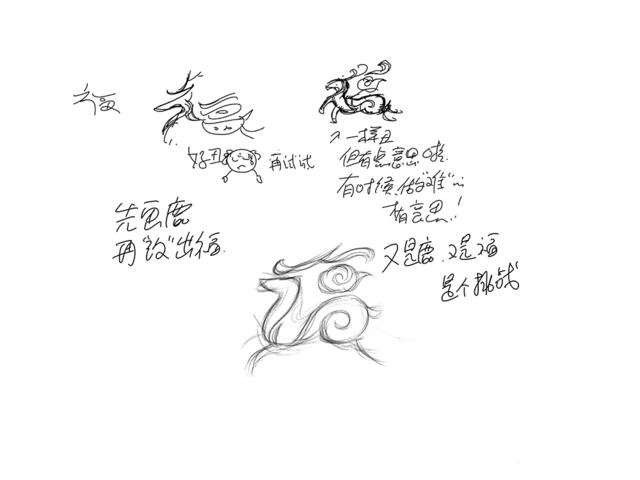 福
好丑
再试试
一样丑
但有点意思啦
有时候做"难"…
有意思!
先画鹿
再"改"出福.
又是鹿.又是福
是个挑战